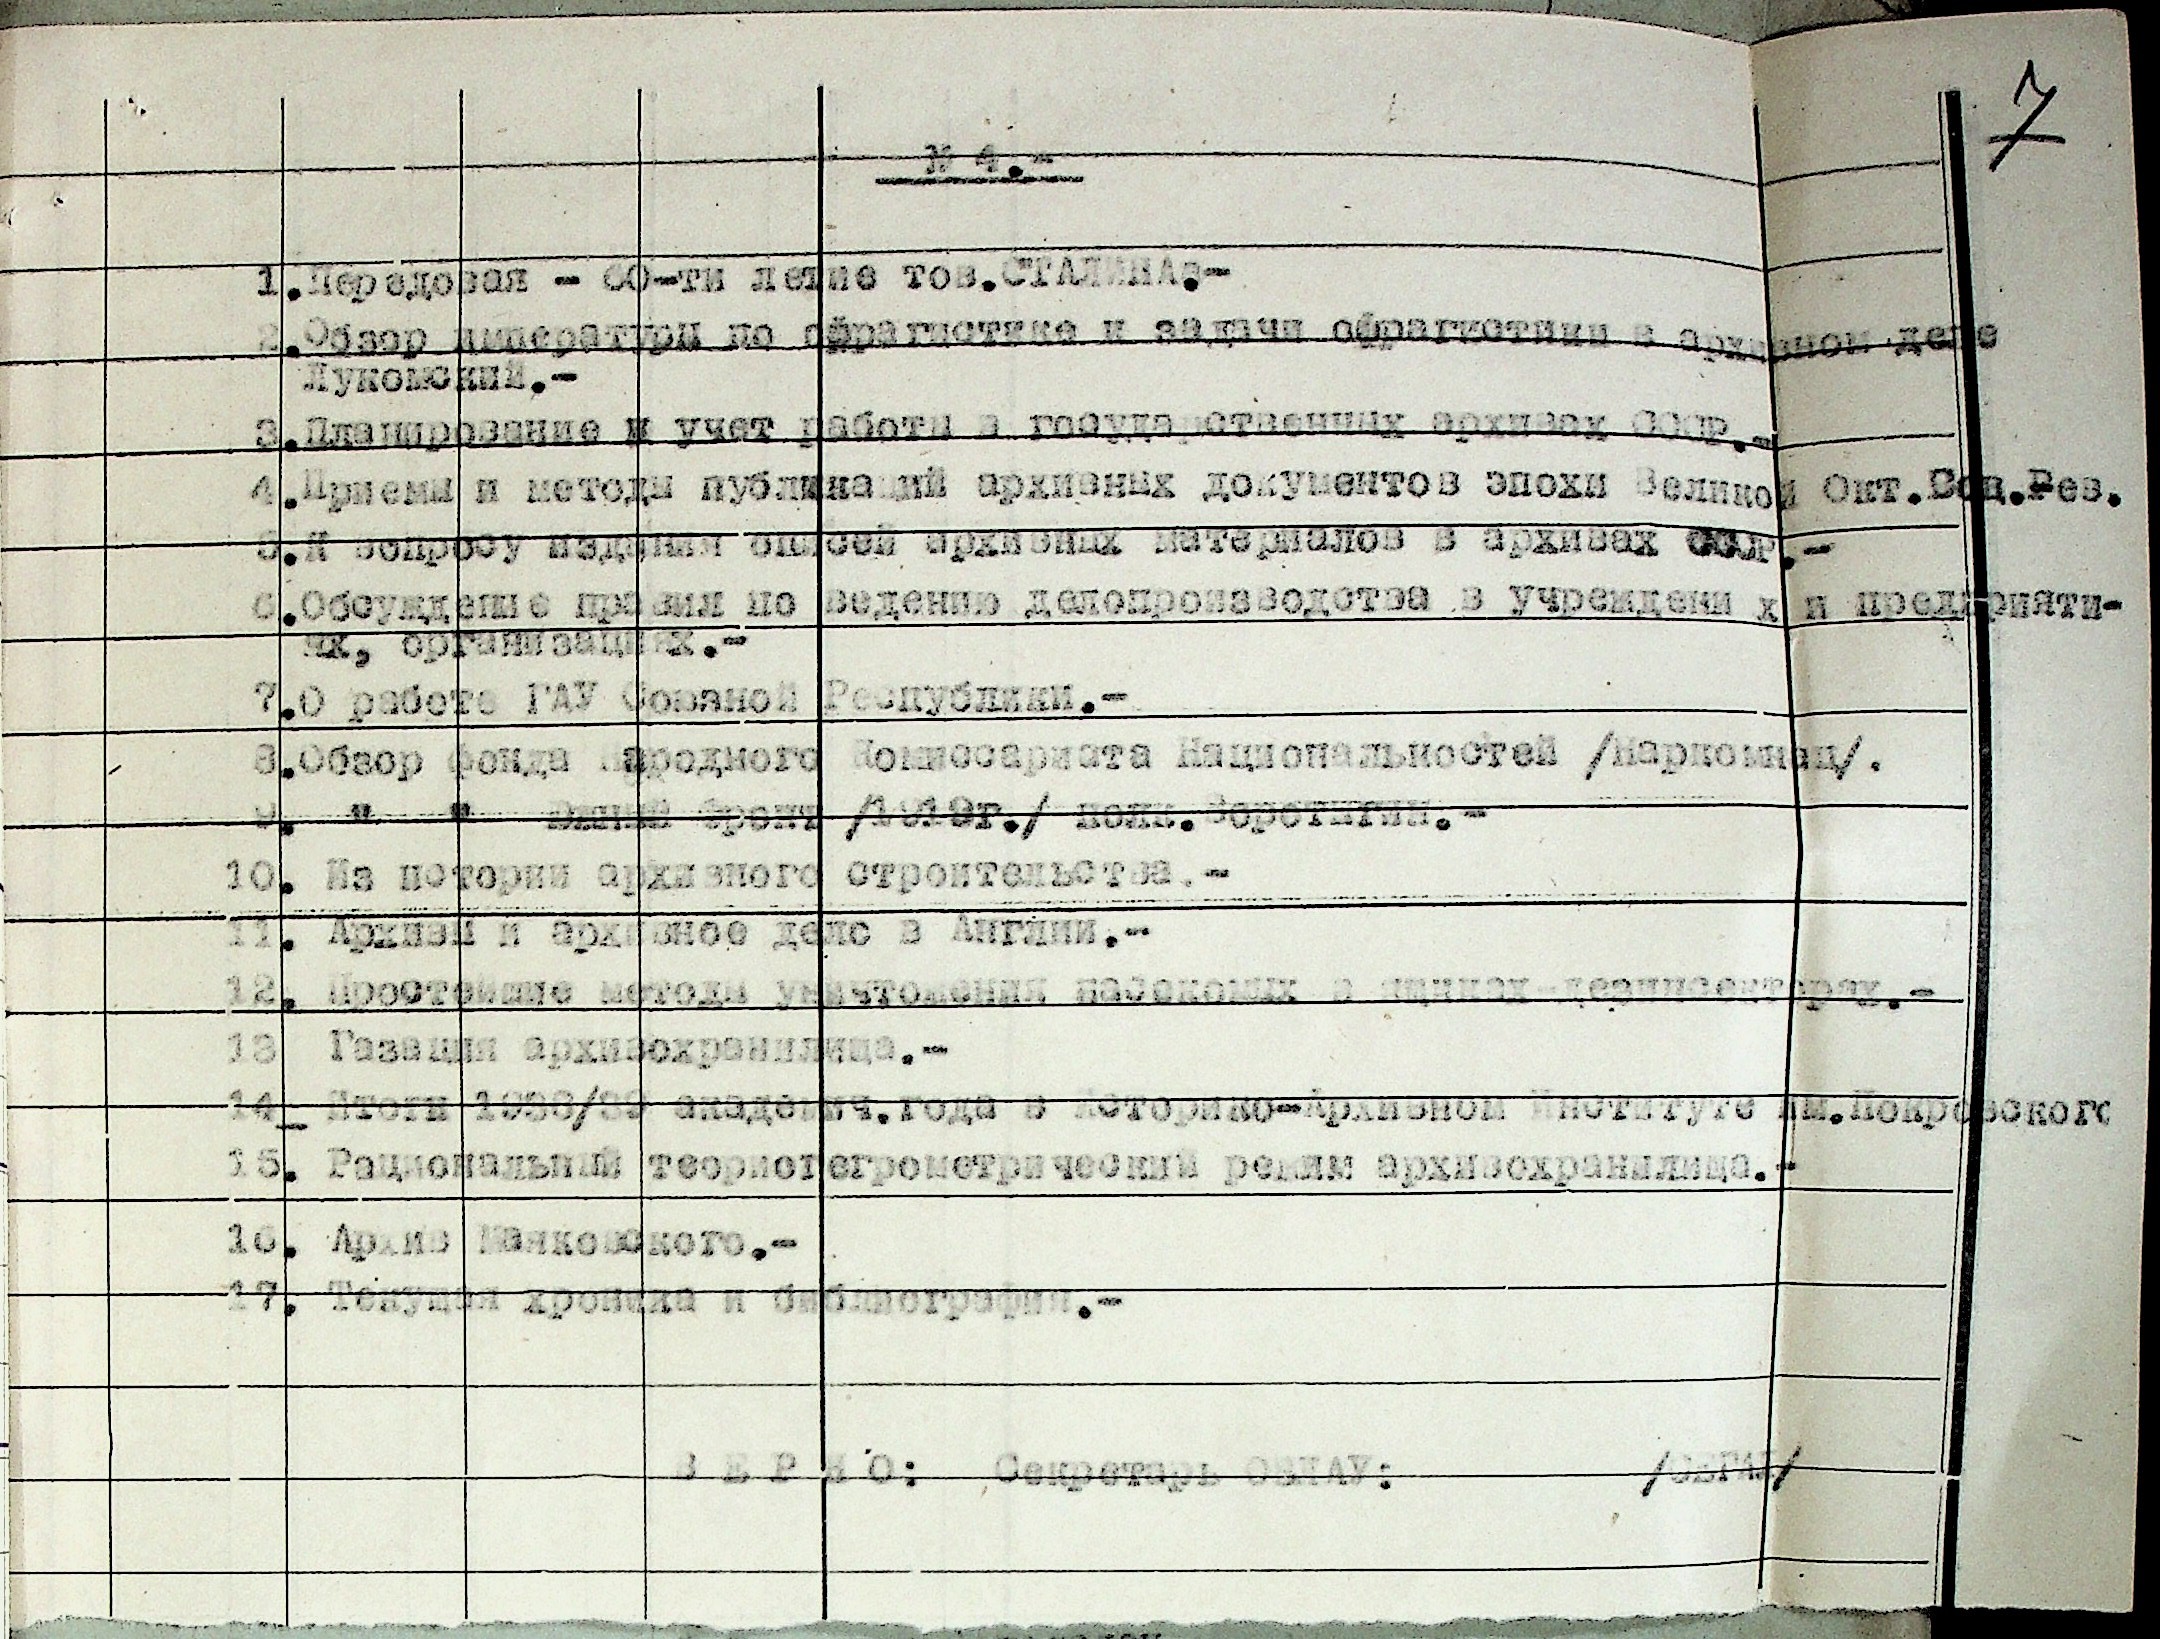 7
№ 4.-
1.Передовая - 60-ти летие тов.СТАЛИНА.-
2.Обзор литературы по сфрагистике и задачи сфрагистики в архивном деле
Лукомский.-
3.Планирование и учет работы в государственных архивах СССР.-
4.Приемы и методы публикаций архивных документов эпохи Великой Окт.Соц.Рев.
5.К вопросу издания описей архивных материалов в архивах СССР.-
6.Обсуждение правил по ведению делопроизводства в учреждени х и предприяти-
ях, организациях.-
7.О работе ГАУ Союзной Республики.-
8.Обзор фонда Народного Комиссариата Национальностей /Наркомнац/.
9. " " Южный фронт /1919г./ полк.Веротигин.-
10. Из истории архивного строительства.-
11. Архивы и архивное дело в Англии.-
12. Простейшие методы уничтожения насекомых в ящиках-дезинсекторах.-
13 Газация архивохранилища.-
14_ Итоги 1938/39 академич.года в Историко-Архивном Институте им.Покровского
15. Рациональный теормогегрометрический режим архивохранилища.-
16. Архив Маяковского.-
17. Текущая хроника и библиография.-
В Е Р Н О: Секретарь ОВИАУ: /СЕГАЛ/